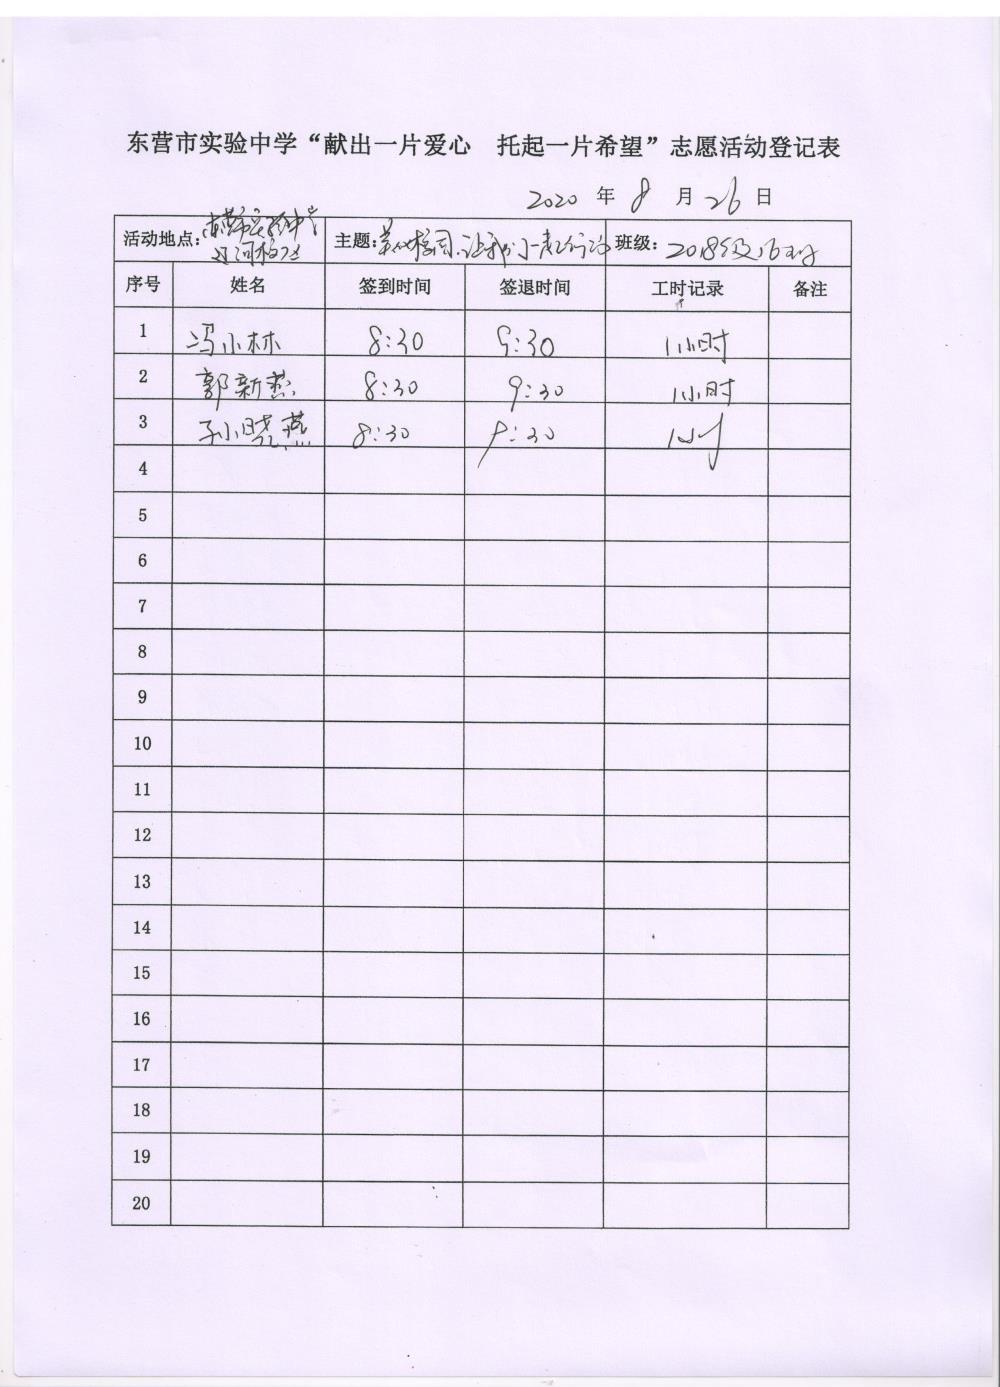 东营市实验中学“献出一片爱心 托起一片希望”志愿活动登记表
2020 年 8 月 26 日
活动地点: 东营市实验中学 主题: 美化校园.让我们一起行动 班级: 2018级16班
序号 姓名 签到时间 签退时间 工时记录 备注
1 冯小林 8:30 9:30 1小时
2 郭新燕 8:30 9:30 1小时
3 孙小晓燕 8:30 9:30
4
5
6
7
8
9
10
11
12
13
14
15
16
17
18
19
20